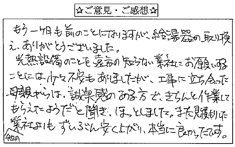 ☆ご意見・ご感想☆
もう一ヶ月も前のことになりますが、給湯器の取り換え、ありがとうございました。
光熱設備のことを玄の知らない業社にお願いすることには少々不安もありましたが、工事に立ち会った母親からは、誠実感のある方で、きちんと作業してもらえたようだと聞き、ほっとしました。また見積りに業社よりもずいぶん安く上がり、本当に良かったです。